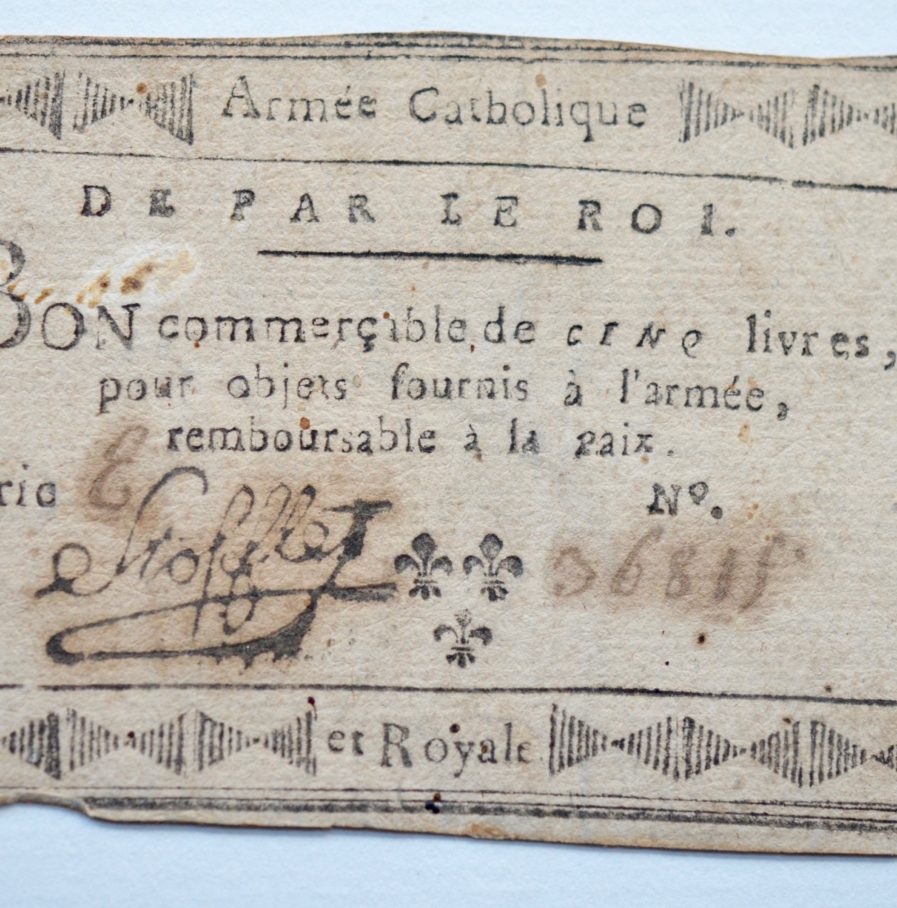 Armée Catholique
DE PAR LE ROI.
BON commerçable de CINQ livres,
pour objets fournis à l'armée,
remboursable à la paix.
rie E Nº.
Stofflet
et Royale